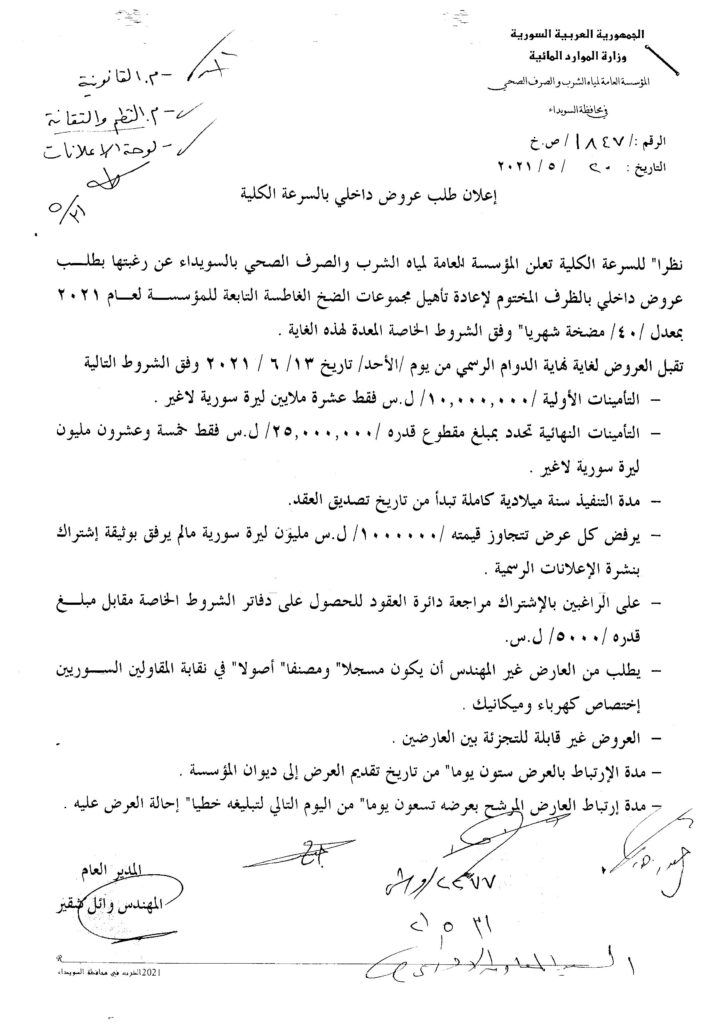 الجمهورية العربية السورية
وزارة الموارد المائية
المؤسسة العامة لمياه الشرب والصرف الصحي
في محافظة السويداء
الرقم :/ ١٨٤٧/ ص.خ
التاريخ : ٢٠ / ٥ / ٢٠٢١
- م. القانونية
- م. التنظيم والتقانة
- لوحة الاعلانات
٥/٣١
إعلان طلب عروض داخلي بالسرعة الكلية
نظرا" للسرعة الكلية تعلن المؤسسة العامة لمياه الشرب والصرف الصحي بالسويداء عن رغبتها بطلب
عروض داخلي بالظرف المختوم لإعادة تأهيل مجموعات الضخ الغاطسة التابعة للمؤسسة لعام ٢٠٢١
بمعدل /٤٠/ مضخة شهريا" وفق الشروط الخاصة المعدة لهذه الغاية .
تقبل العروض لغاية نهاية الدوام الرسمي من يوم /الأحد/ تاريخ ١٣/ ٦ / ٢٠٢١ وفق الشروط التالية
– التأمينات الأولية /١٠,٠٠٠,٠٠٠/ ل.س فقط عشرة ملايين ليرة سورية لاغير .
– التأمينات النهائية تحدد بمبلغ مقطوع قدره /٢٥,٠٠٠,٠٠٠/ ل.س فقط خمسة وعشرون مليون
ليرة سورية لاغير .
– مدة التنفيذ سنة ميلادية كاملة تبدأ من تاريخ تصديق العقد.
– يرفض كل عرض تتجاوز قيمته /١٠٠٠٠٠٠/ ل.س مليون ليرة سورية مالم يرفق بوثيقة إشتراك
بنشرة الإعلانات الرسمية .
– على الراغبين بالإشتراك مراجعة دائرة العقود للحصول على دفاتر الشروط الخاصة مقابل مبلغ
قدره /٥٠٠٠/ ل.س.
– يطلب من العارض غير المهندس أن يكون مسجلا" ومصنفا" أصولا" في نقابة المقاولين السوريين
إختصاص كهرباء وميكانيك .
– العروض غير قابلة للتجزئة بين العارضين .
– مدة الإرتباط بالعرض ستون يوما" من تاريخ تقديم العرض إلى ديوان المؤسسة .
– مدة إرتباط العارض المرشح بعرضه تسعون يوما" من اليوم التالي لتبليغه خطيا" إحالة العرض عليه .
المدير العام
المهندس وائل شقير
٣١ ٥ ٢١
2021 الخربت في محافظة السويداء